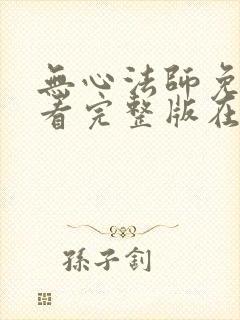 無心法師免
看完整版在
孫子釗